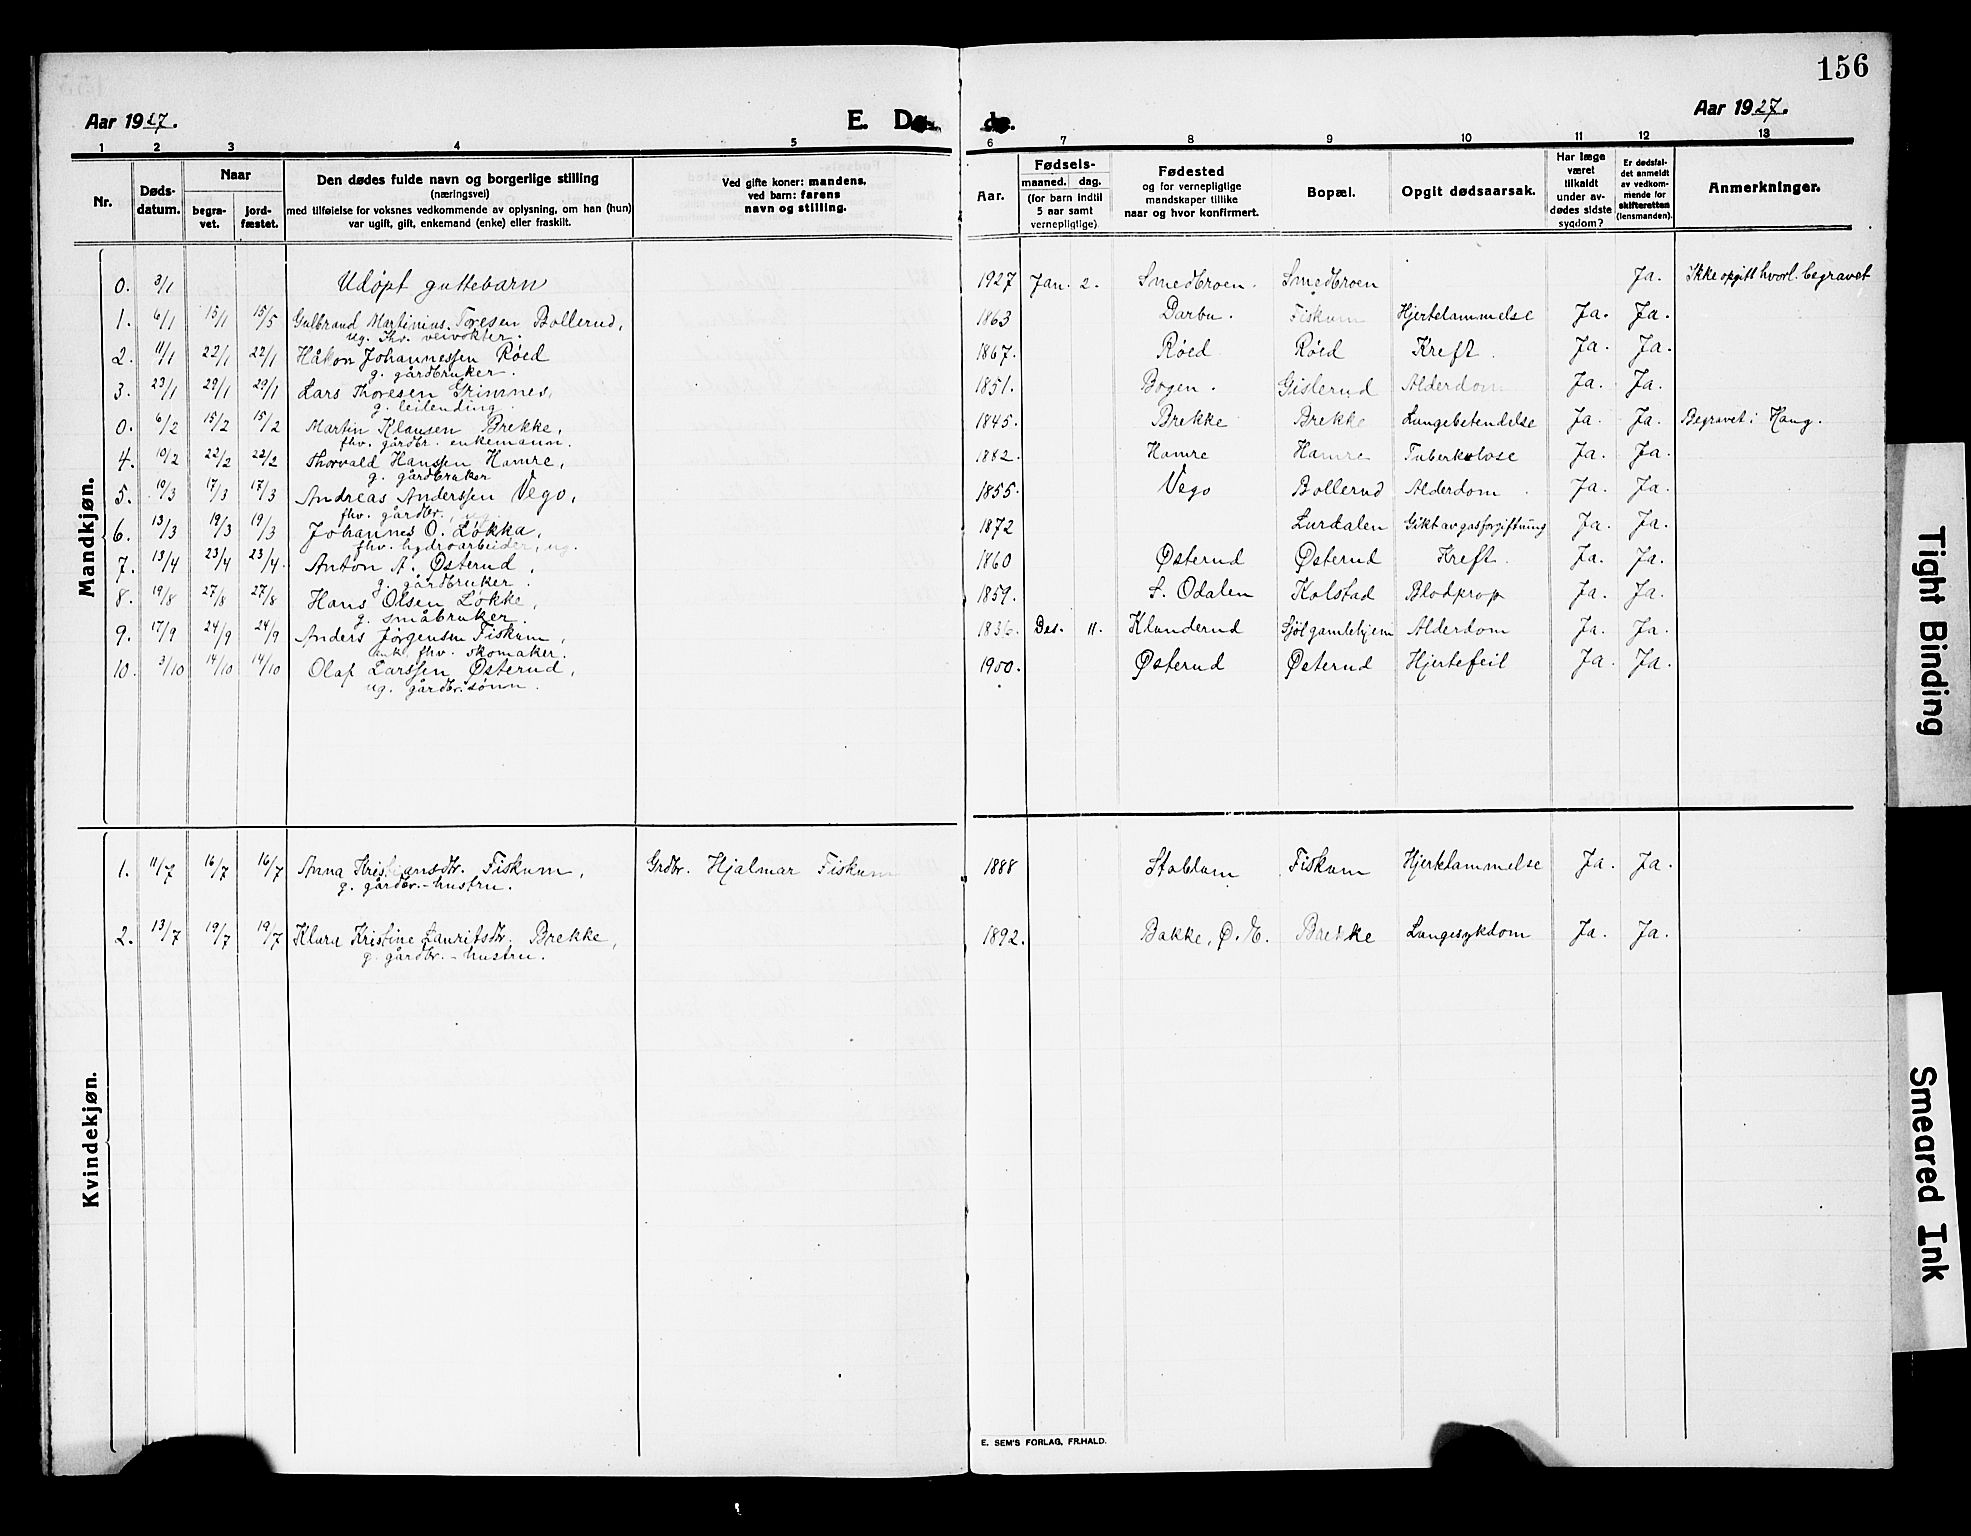 156
Aar 1927.
E. Dø-
de.
Aar 1927.
1 2 3 4 5 6 7 8 9 10 11 12 13
Nr.
Døds-
datum.
Naar
begra-
vet.
jord-
fæstet.
Den dødes fulde navn og borgerlige stilling
(næringsvei)
med tilføielse for voksnes vedkommende av oplysning, om han (hun)
var ugift, gift, enkemand (enke) eller fraskilt.
Ved gifte koner: mandens,
ved barn: farens
navn og stilling.
Aar.
Fødsels-
maaned. dag.
(for barn indtil
5 aar samt
vernepligtige)
Fødested
og for vernepligtige
mandskaper tillike
naar og hvor konfirmert.
Bopæl.
Opgit dødsaarsak.
Har læge
været
tilkaldt
under av-
dødes sidste
sygdom?
Er dødsfal-
det anmeldt
av vedkom-
mende for
skifteretten
(lensmanden).
Anmerkninger.
Mandkjøn.
0. 3/1 Udøpt guttebarn 1927 Jan. 2. Smedbroen. Smedbroen Ja. Ikke opgitt hvorl. begravet
1. 6/1 15/1 15/5 Gulbrand Martinius Toresen Bollerud, 1863 Darbu. Fiskum Hjertelammelse Ja. Ja.
ug. fhv. veivokter.
2. 11/1 22/1 22/1 Håkon Johannessen Røed 1867. Røed Røed Kreft. Ja. Ja.
g. gårdbruker.
3. 23/1 29/1 29/1 Lars Thoresen Grimnes, 1851. Bogen. Gislerud Alderdom Ja. Ja.
g. leilending.
0. 6/2 15/2 15/2 Martin Klausen Brekke, 1845. Brekke Brekke Lungebetendelse Ja. Ja. Begravet i Haug.
fhv. gårdbr. enkemann.
4. 10/2 22/2 22/2 Thorvald Hanssen Hamre, 1882. Hamre Hamre Tuberkulose Ja. Ja.
g. gårdbruker
5. 10/3 17/3 17/3 Andreas Anderssen Vego, 1855. Vego Bollerud Alderdom. Ja. Ja.
fhv. gårdbr., ug.
6. 13/3 19/3 19/3 Johannes O. Løkka, 1872 Lurdalen Gikt av gasforgiftning Ja. Ja.
fhv. hydroarbeider, ug.
7. 13/4 23/4 23/4. Anton A. Østerud, 1860 Østerud Østerud Kreft. Ja. Ja.
g. gårdbruker.
8. 19/8 27/8 27/8 Hans Olsen Løkke, 1859. S. Odalen Kolstad Blodprop Ja. Ja.
g. småbruker.
9. 17/9 24/9 24/9 Anders Jørgensen Fiskum, 1836. Des. 11. Klunderud Sjøl gamlehjem Alderdom Ja. Ja.
enk. fhv. skomaker.
10. 3/10 14/10 14/10 Olaf Larssen Østerud, 1900. Østerud Østerud Hjertefeil Ja. Ja.
ug. gårdbr.sønn.
Kvindekjøn.
1. 11/7 16/7 16/7 Anna Kristiansdtr. Fiskum, Grdbr. Hjalmar Fiskum 1888 Stablum Fiskum Hjertelammelse Ja. Ja.
g. gårdbr.-hustru.
2. 13/7 19/7 19/7 Klara Kristine Lauritsdtr. Brekke, 1892. Bakke, Ø. E. Brekke Lungesykdom Ja. Ja.
g. gårdbr.-hustru.
E. SEM'S FORLAG, FR.HALD.
Tight Binding
Smeared Ink